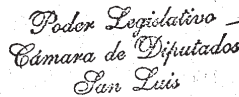 Poder Legislativo
Cámara de Diputados
San Luis